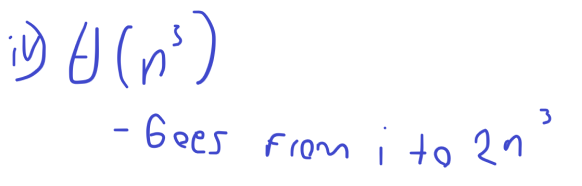 iv) θ(n³)
- Goes from i to 2n³